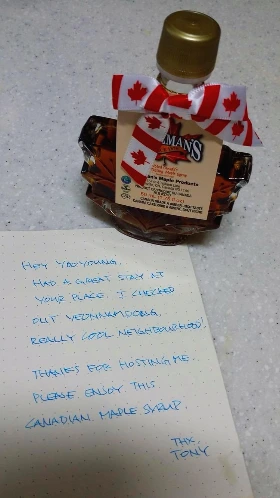 MAN'S
Maple Products
HEY YOOYOUNG,
HAD A GREAT STAY AT
YOUR PLACE. I CHECKED
OUT YEONNAMDONG.
REALLY COOL NEIGHBOURHOOD!
THANKS FOR HOSTING ME.
PLEASE ENJOY THIS
CANADIAN MAPLE SYRUP.
THX,
TONY